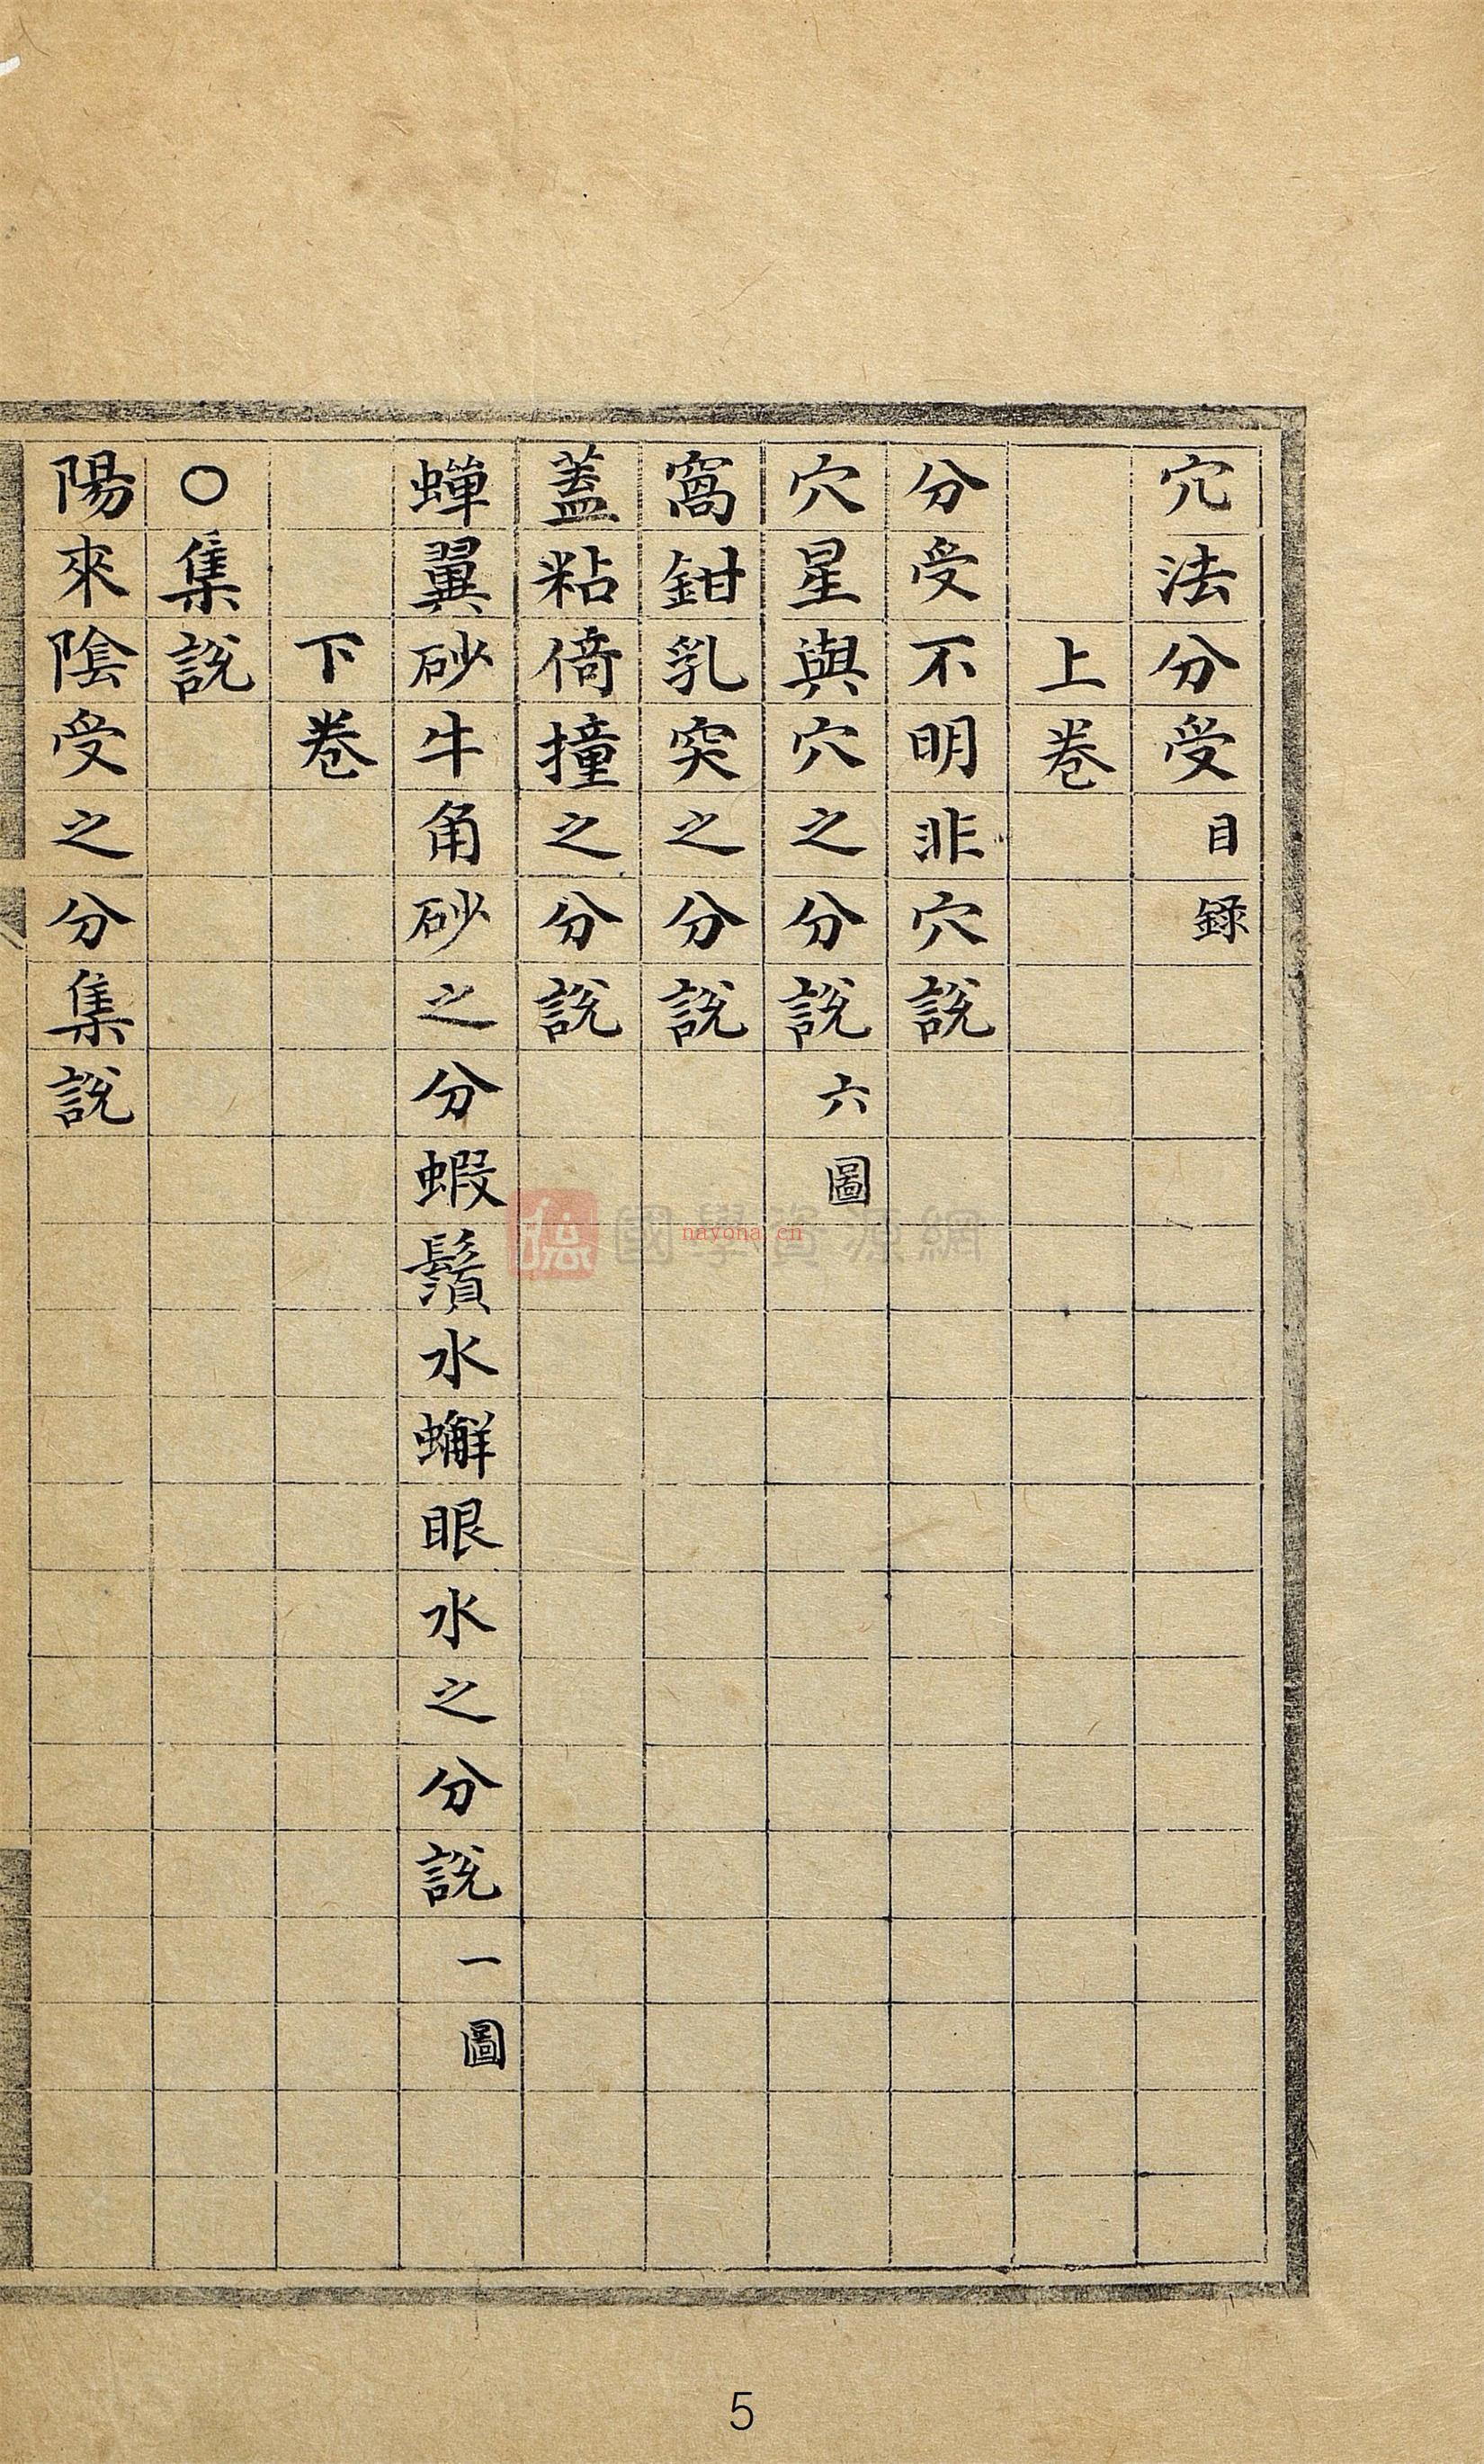 穴法分受目錄
上卷
分受不明非穴說
穴星與穴之分說六圖
窩鉗乳突之分說
蓋粘倚撞之分說
蟬翼砂牛角砂之分蝦鬚水蠏眼水之分說一圖
下卷
○集說
陽來陰受之分集說
國學資源網
nayona.cn
5